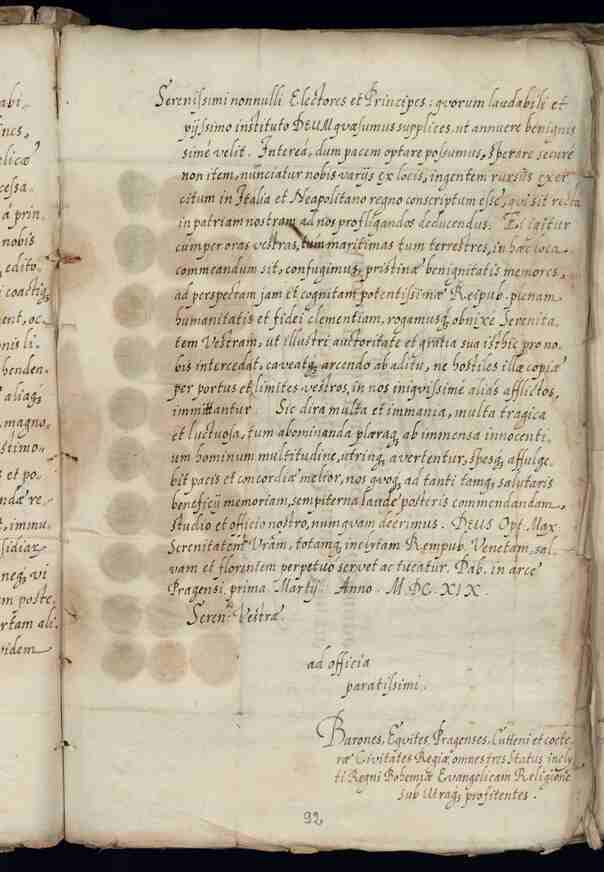 abi-
ines,
elicæ
cessa.
á prin.
nobis
edito.
i coactig,
ent, oc.
nis li.
henden.
aliaq́;
magno.
stimo.
s et po.
ndæ re.
t, immu.
sidiar
neq; vi
m poste.
rtam ali.
videm
Serenissimi nonnulli Electores et Principes: qvorum laudabili et
pijssimo instituto DEUM qvæsumus supplices, ut annuere benignis
simé velit. Interea, dum pacem optare possumus, sperare securé
non item, nunciatur nobis varijs ex locis, ingentem rursus exer
citum in Italia et Neapolitano regno conscriptum esse, qui sit recta
in patriam nostram ad nos profligandos deducendus. Ei igitur
cum per oras vestras, tum maritimas tum terrestres, in hæc loca
commeandum sit, confugimus, pristinæ benignitatis memores,
ad perspectam jam et cognitam potentissimæ Reipub. plenam
humanitatis et fidei clementiam, rogamusq; obnixé Serenita,
tem Vestram, ut illustri auctoritate et gratia sua isthic pro no.
bis intercedat, caveatq; arcendo ab aditu, ne hostiles illæ copiæ
per portus et limites vestros, in nos iniqvissimé alias afflictos,
immittantur. Sic dira multa et immania, multa tragica
et luctuosa, tum abominanda plæraq; ab immensa innocenti.
um hominum multitudine, utrinq; avertentur, spesq; affulge.
bit pacis et concordiæ melior, nos qvoq; ad tanti tamq; salutaris
beneficij memoriam, sempiterna laude posteris commendandam,
studio et officio nostro, numqvam deerimus. DEUS Opt. Max.
Serenitatem Vram, totamq; inclytam Rempub. Venetam, sal.
vam et florentem perpetuo servet ac tueatur. Dab. in arce
Pragensi, prima Martij. Anno. M DC XIX.
Seren.tis Vestræ.
ad officia
paratissimi.
Barones, Eqvites, Pragenses, Cutteni et cœte.
ræ Civitates Regiæ, omnes tres Status incly
ti Regni Bohemiæ Evangelicam Religione
sub Utraq; profitentes.
92